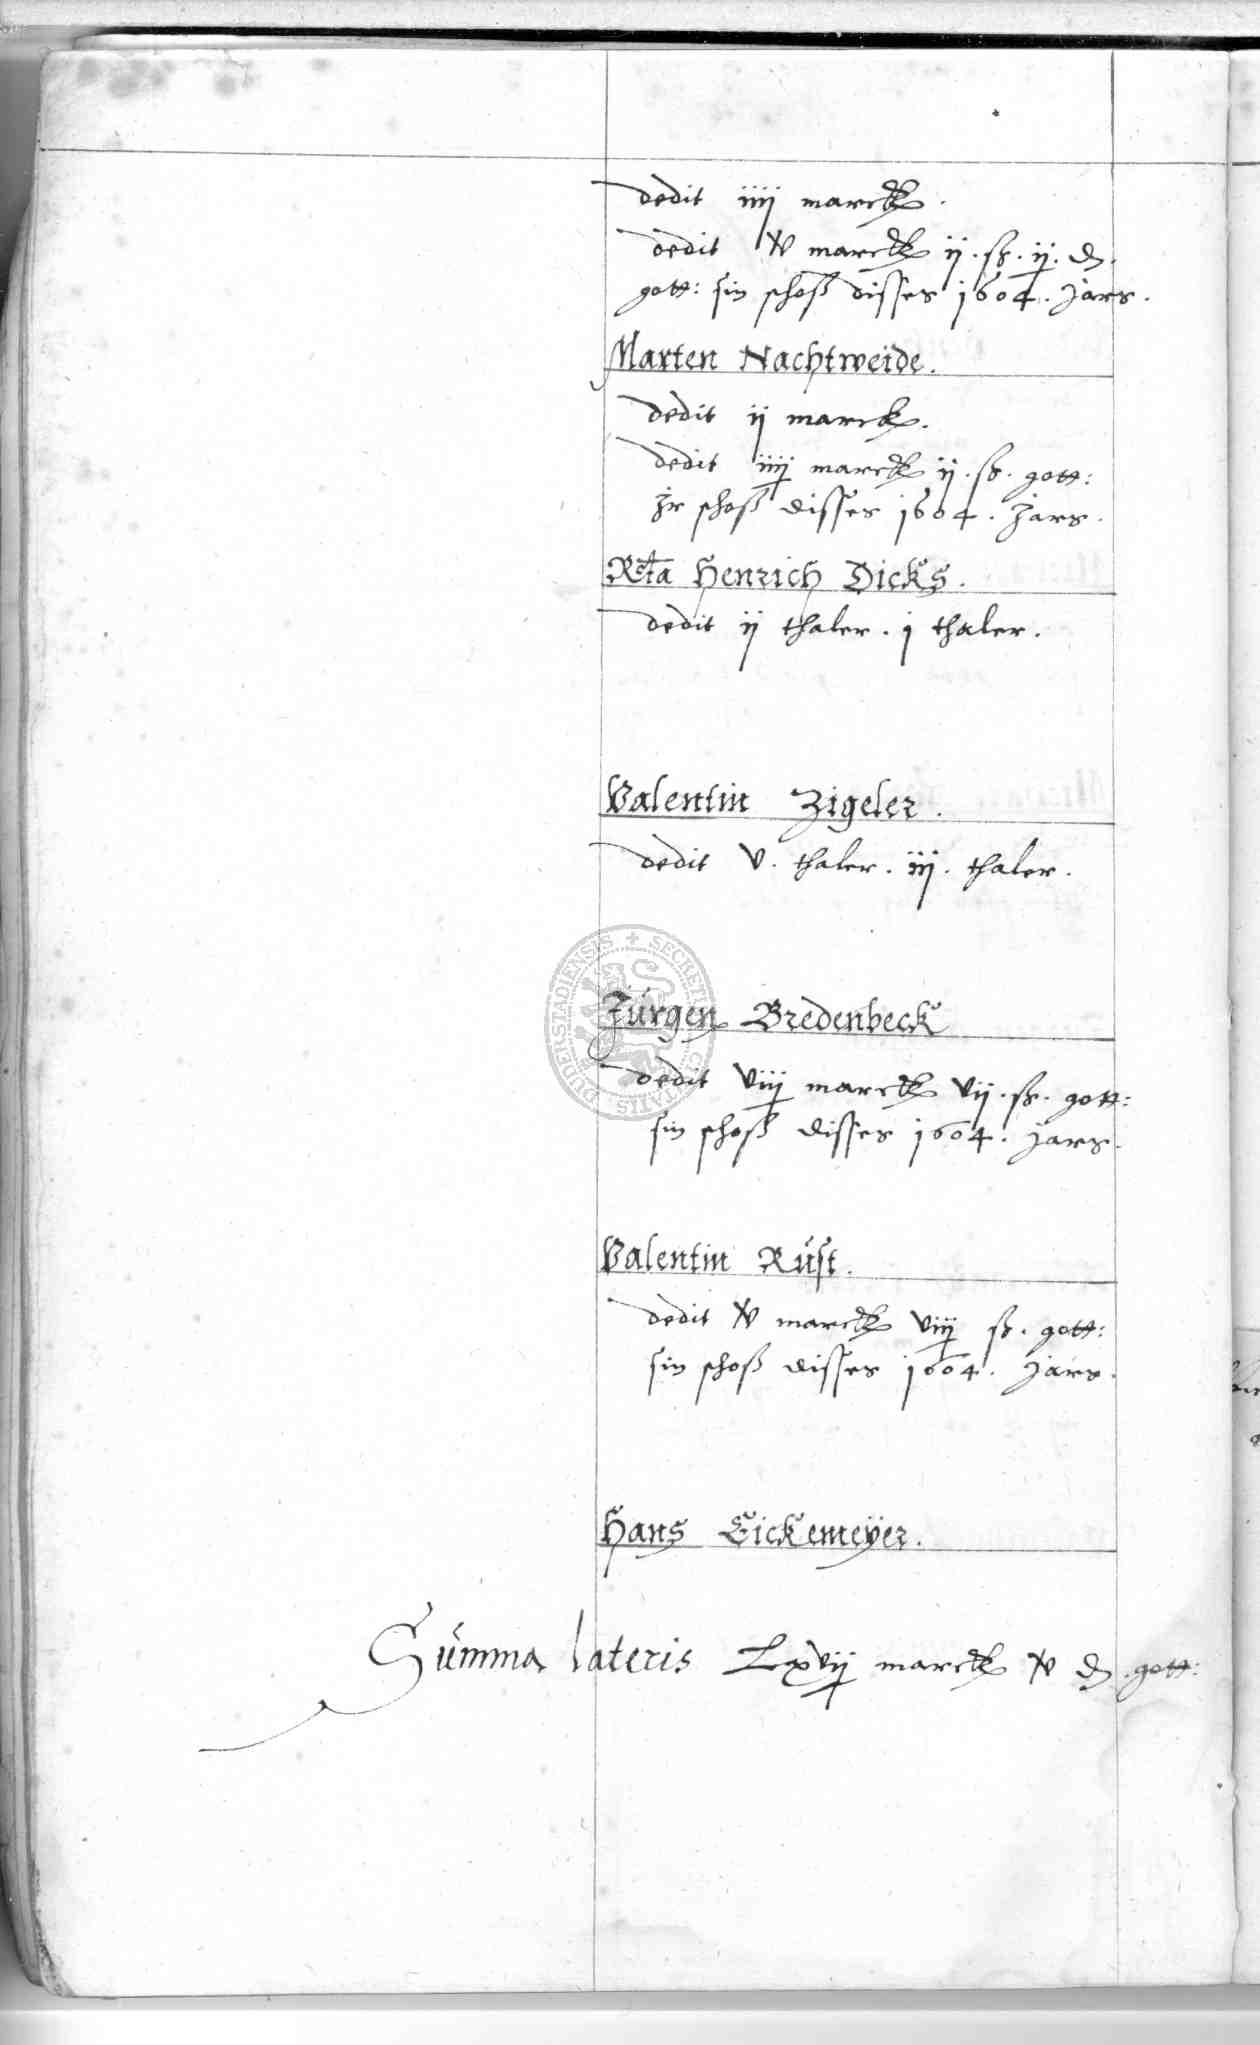 dedit iiij marck.
dedit v marck ij. ß. ij. d.
gott: sin schoß disses 1604. jars.
Marten Nachtweide.
dedit ij marck.
dedit iiij marck ij. ß. gott:
Jr schoß disses 1604. Jars.
Rcta Henrich Dicks.
dedit ij thaler. j thaler.
Valentin Zigeler.
dedit v. thaler. iij. thaler.
SECRETUM CIVITATIS DUDERSTADIENSIS
Jürgen Bredenbeck
dedit viij marck vij. ß. gott:
sin schoß disses 1604. jars.
Valentin Rust.
dedit v marck viij ß. gott:
sin schoß disses 1604. jars.
Hans Eickemeÿer.
Summa lateris Lxvij marck v d. gott: